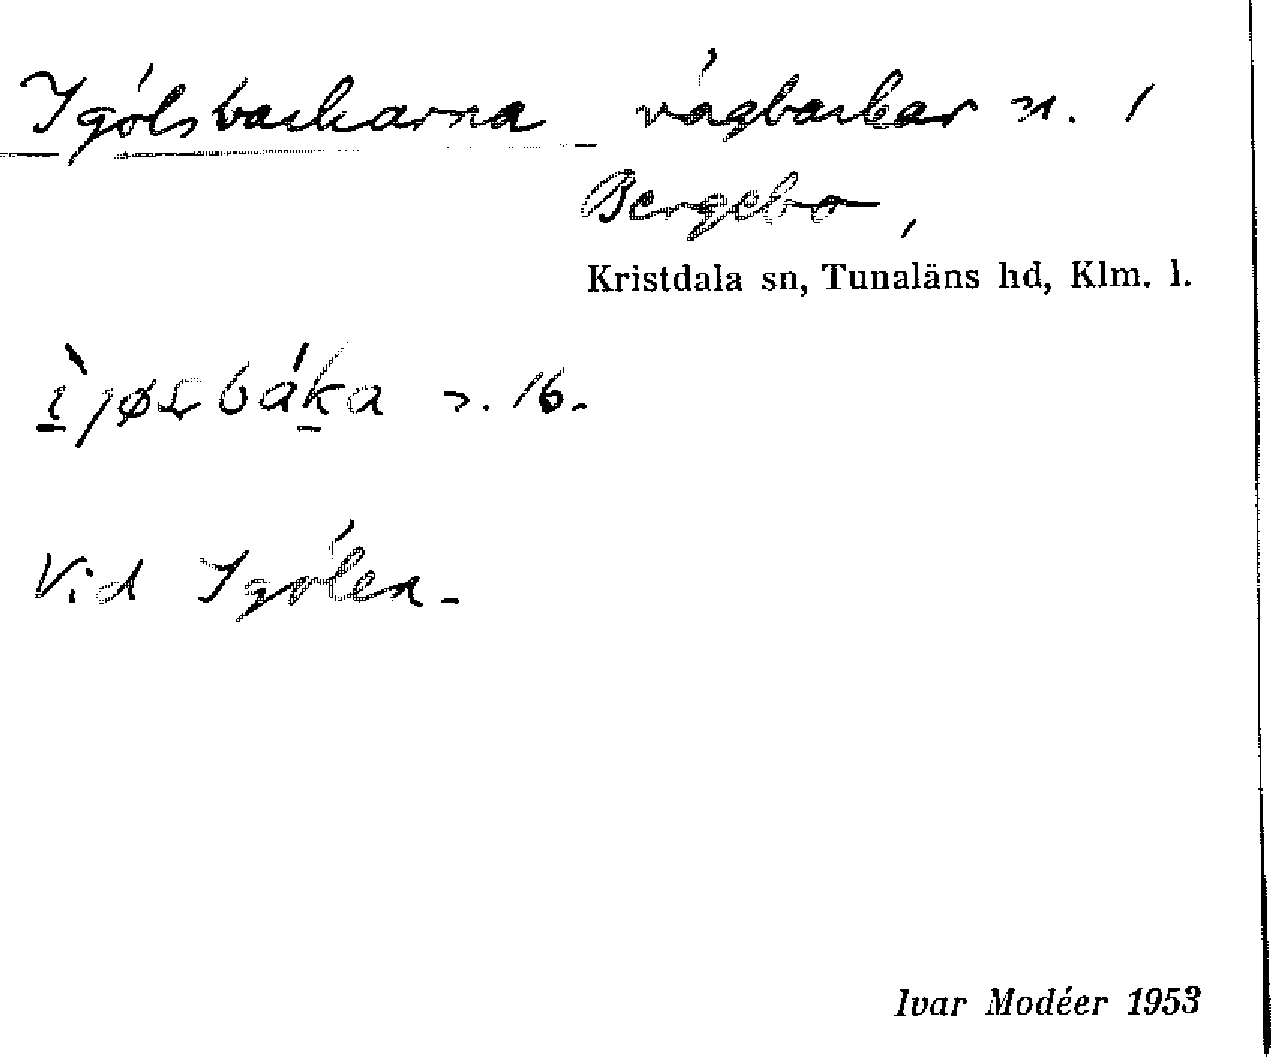 Igölsbackarna vägbackar n. 1
Bergebo,
Kristdala sn, Tunaläns hd, Klm. l.
s. 16.
Vid Igölen.
Ivar Modéer 1953